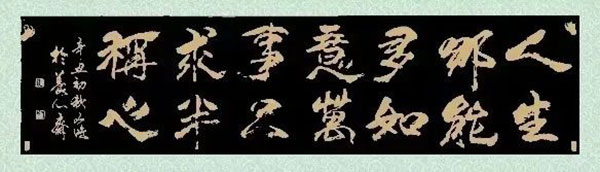 人生
哪能
多如
意萬
事只
求半
稱心
辛丑初秋
於養心齋